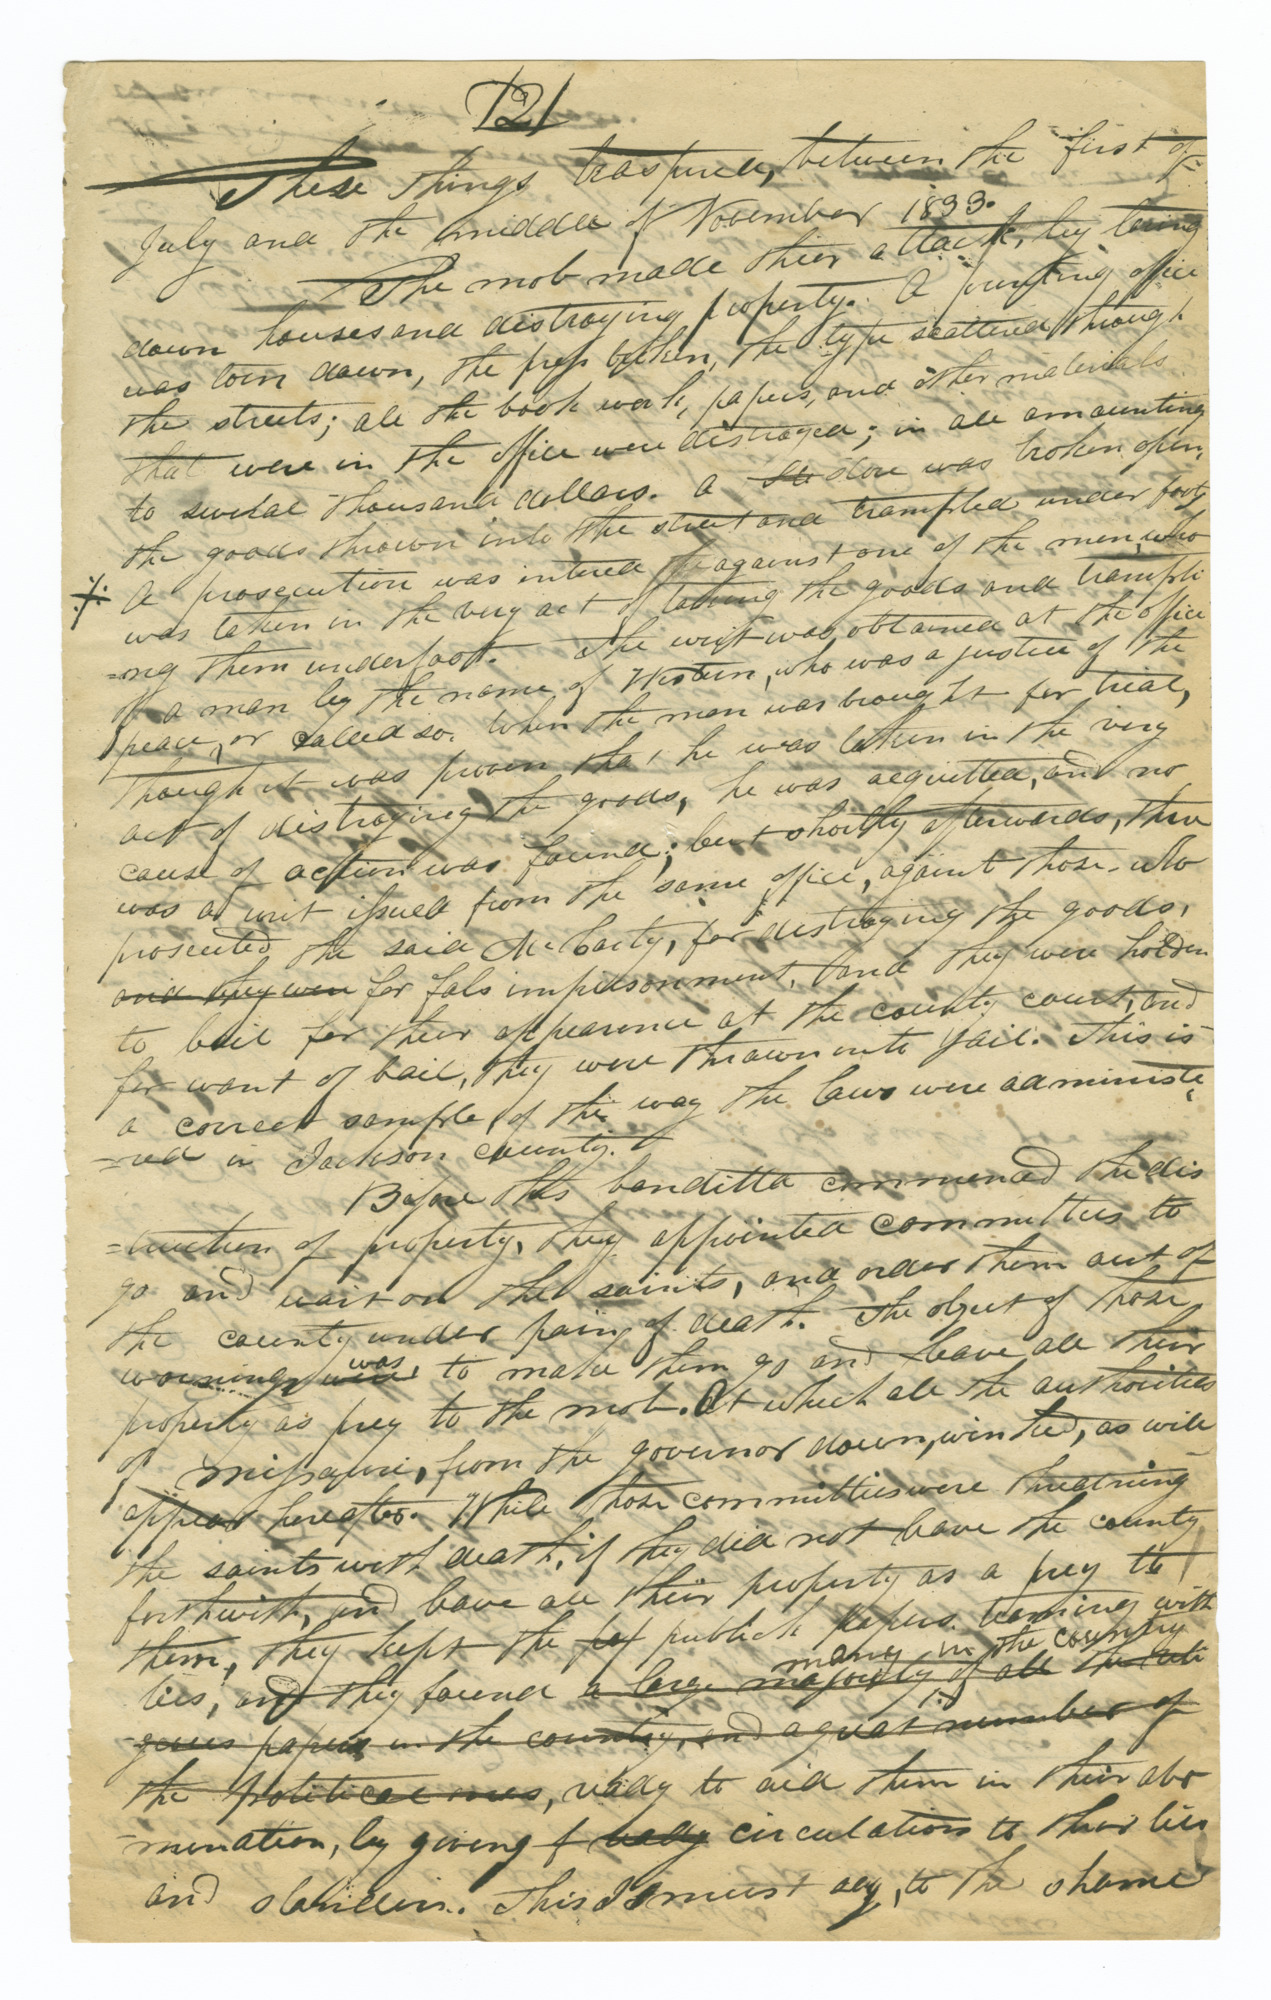 [12]
These things traspired, between the first of
July and the middle of November 1833.
The mob made thier attack, by tearing
down houses and distroying property. A printing office
was torn down, the press broken, the type scattered through
the streets; all the book work, papers, and other materials
that were in the office were distroyed; in all amounting
to several thousand dollars. A st store was broken open,
the goods thrown into the street and trampled under foot;
A prosecution was intered against one of the men, who
was taken in the very act of taking the goods and trampli
=ng them underfoot. The writ was obtained at the office
of a man by the name of Westen, who was a justice of the
peace, or called so. When the man was brought for trial,
though it was proven that he was taken in the very
act of distroying the goods, he was acquitted, and no
cause of action was found; but shortly afterwards, there
was a writ issued from the same office, against those who
prosecuted the said McCarty, for distroying the goods,
and they were for fals imprisonment, and they were holden
to bail for their appearence at the county court, and
for want of bail, they were thrown into jail. This is
a correct sample of the way the laws were administe
=red in Jackson county.
Before this banditta commenced the dis
=truction of property, they appointed committees to
go and wait on the saints, and order them out of
the county under pain of death. The object of those
warnings were was to make them go and leave all their
property as prey to the mob. At which all the authorities
of Missouri, from the governor down, winked, as will
appear hereafter. While those committies were threatning
the saints with death, if they did not leave the county
forthwith, and leave all their property as a prey to
them, they kept the publick papers teaming with
many in the country
lies, and they found a large majority of all the reli
gious papers in the country, and a great number of
the political ones, ready to aid them in their abo
=mination, by giving f ready circulation to their lies
and slanders. This I must say, to the shame